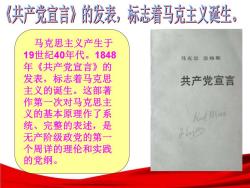 《共产党宣言》的发表,标志着马克主义诞生。
马克思主义产生于
19世纪40年代。1848
年《共产党宣言》的
发表,标志着马克思
主义的诞生。这部著
作第一次对马克思主
义的基本原理作了系
统、完整的表述,是
无产阶级政党的第一
个周详的理论和实践
的党纲。
马克思 恩格斯
共产党宣言